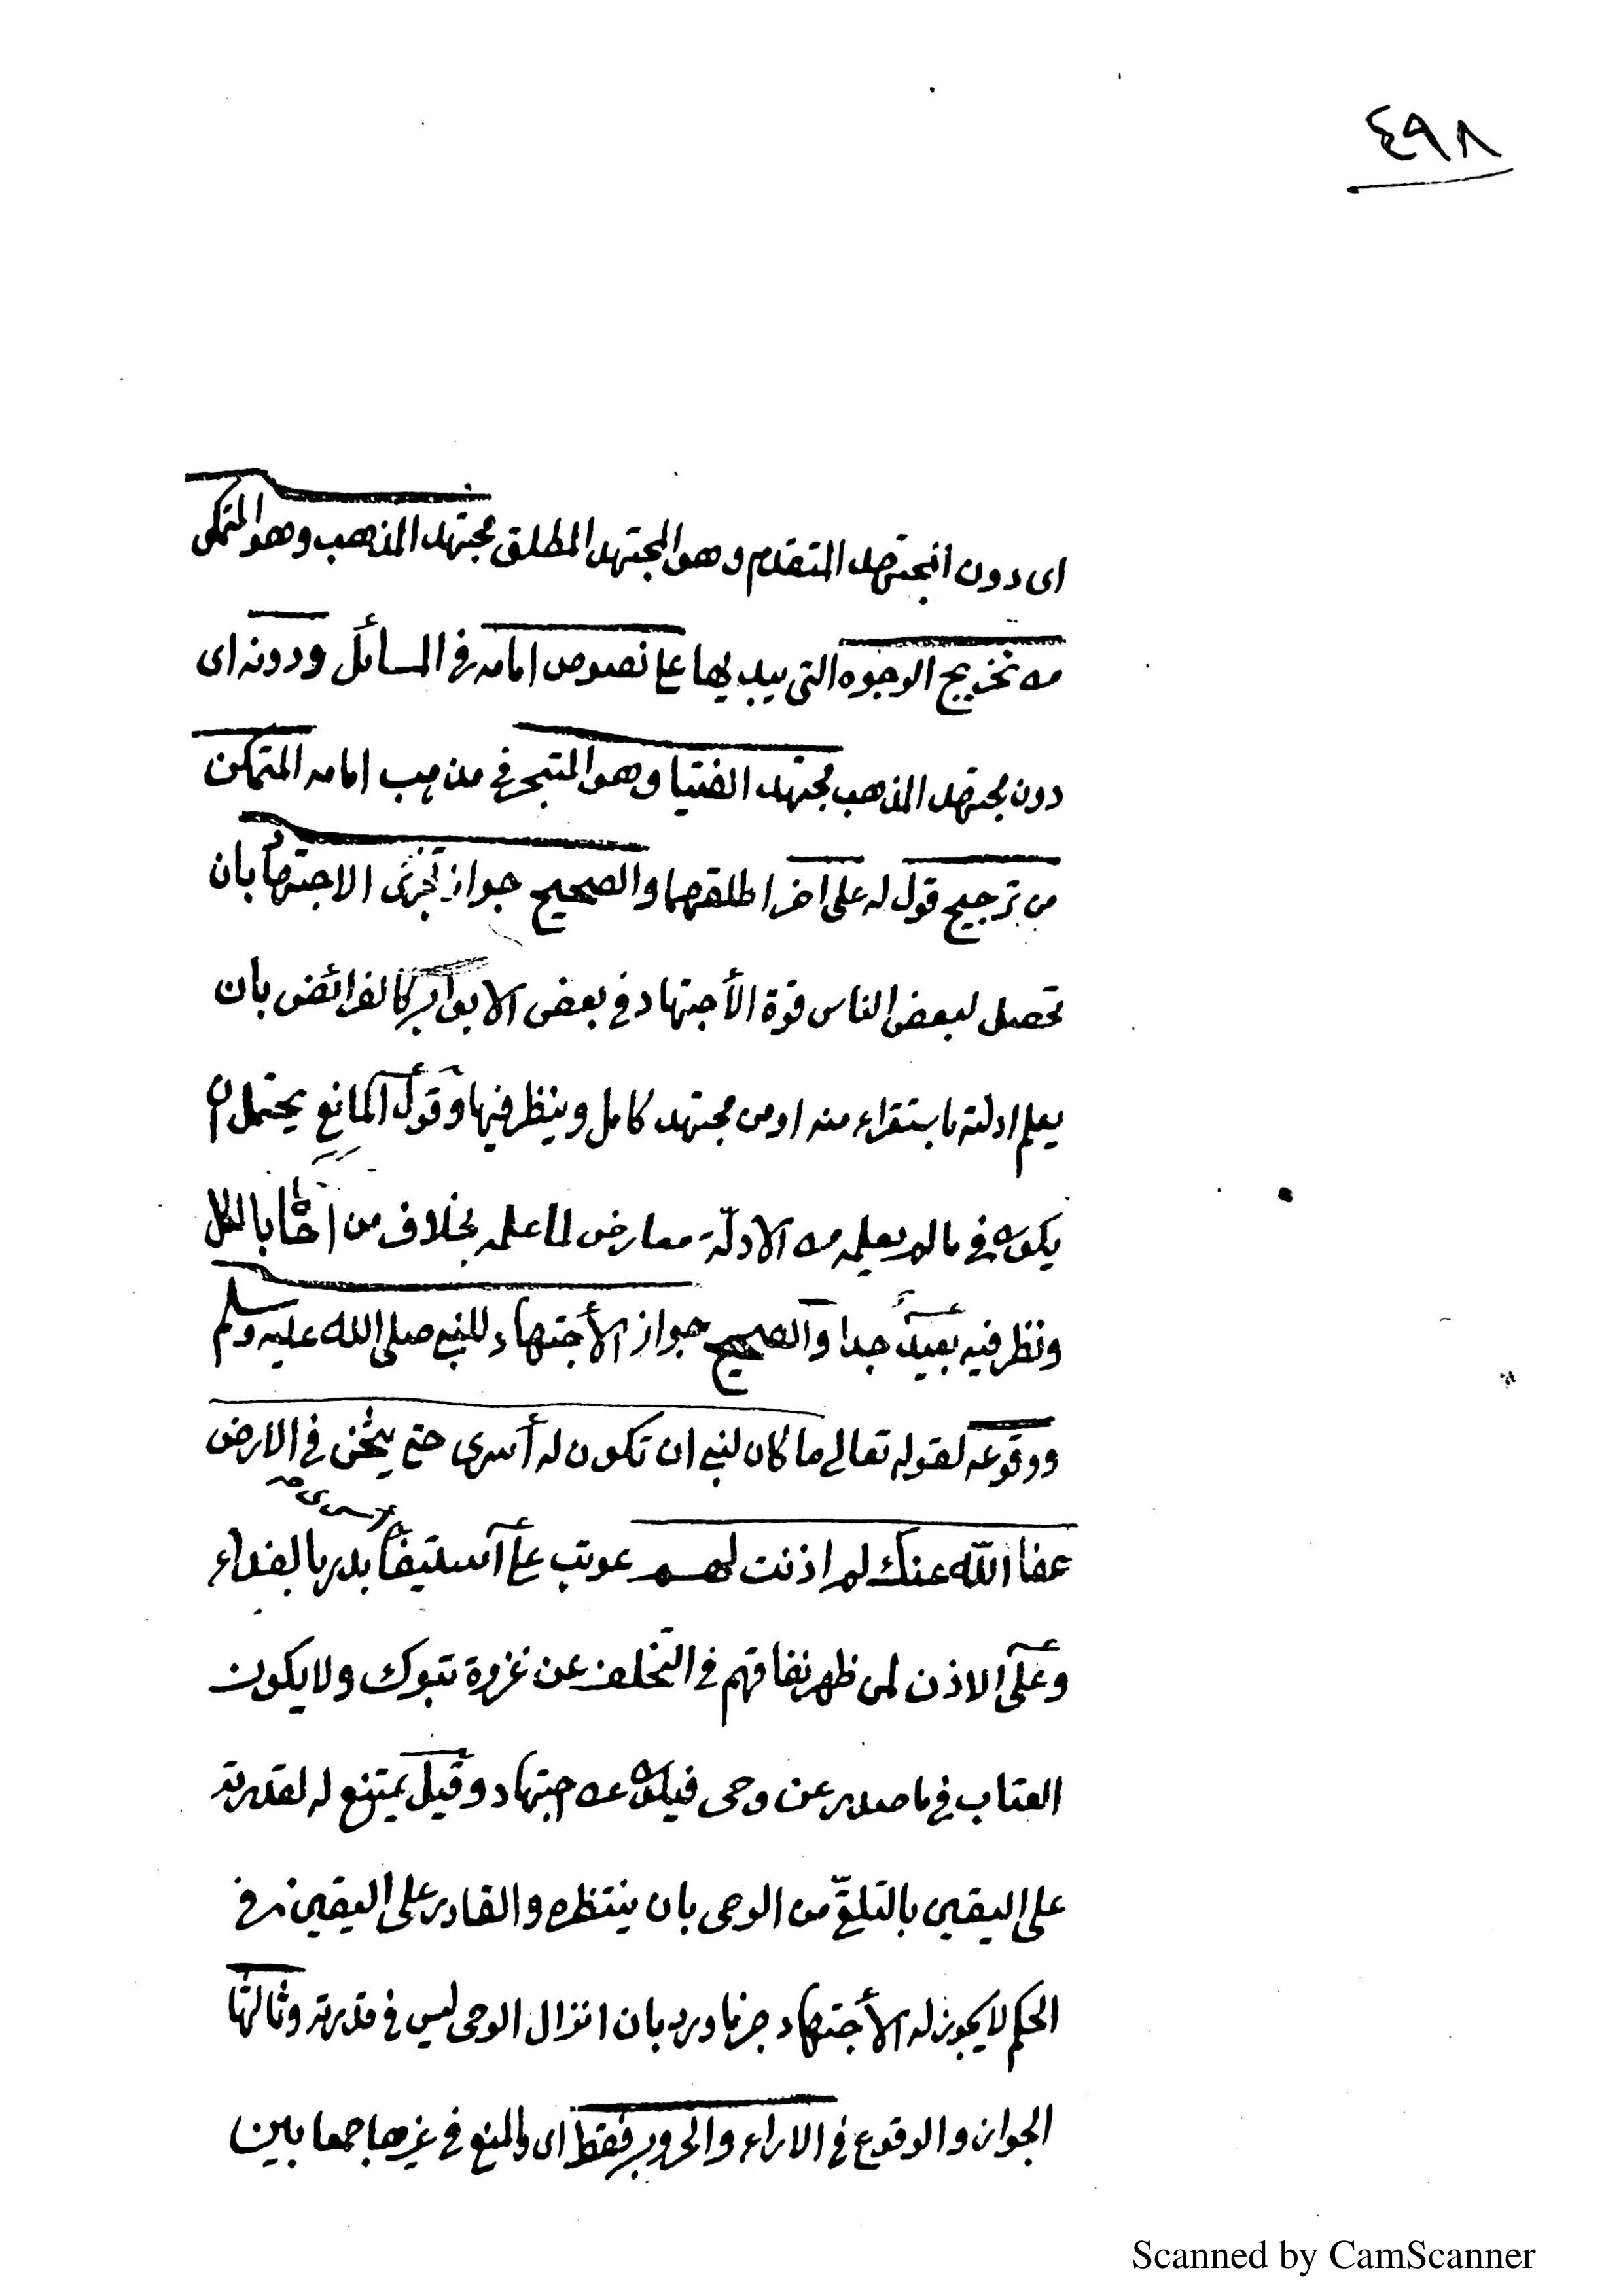 ٤٩٨
اى دون المجتهد المتقدم وهو المجتهد المطلق مجتهد المذهب وهو المتمكن
من تخريج الوجوه التى يبديها على نصوص امامه فى المسائل ودونه اى
دون مجتهد المذهب مجتهد الفتيا وهو المتبحر فى مذهب امامه المتمكن
من ترجيح قول له على اخر اطلقهما والصحيح جواز تجزى الاجتهاد بان
تحصل لبعض الناس قوة الأجتهاد فى بعض الابواب كالفرائض بان
يعلم ادلته باستقراء منه او من مجتهد كامل وينظر فيها وقول المانع يحتمل ان
يكون فى ما لم يعلمه من الادلّة معارض لما علمه بخلاف من احاط بالكل
ونظر فيه بعيد جدا والصحيح جواز الأجتهاد للنبى صلى الله عليه وسلم
ووقوعه لقوله تعالى ما كان لنبى ان تكون له أسرى حتى يثخن فى الارض
عفا الله عنك لم اذنت لهم عوتب على استبقاء بدر بالفداء
اسرى
وعلى الاذن لمن ظهر نفاقهم فى التخلف عن غزوة تبوك ولا يكون
العتاب فى ما صدر عن وحى فيكون عن اجتهاد وقيل يمتنع له لقدرته
على اليقين بالتلقّى من الوحى بان ينتظره والقادر على اليقين فى
الحكم لا يجوز له الأجتهاد جزما ورد بان انزال الوحى ليس فى قدرته وثالثها
الجواز والوقوع فى الاراء والحروب فقط اى والمنع فى غيرها جمعا بين
Scanned by CamScanner